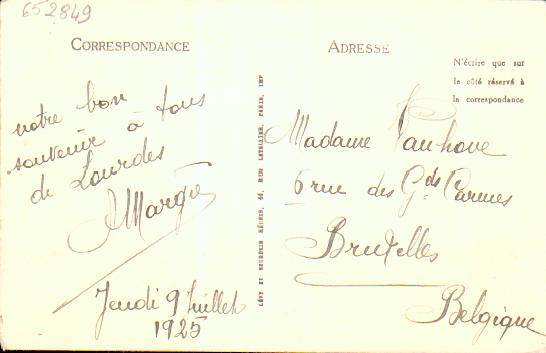 652849
CORRESPONDANCE
notre bon
souvenir à tous
de Lourdes
AMargie
Jeudi 9 Juillet
1925
LÉVY ET NEURDEIN RÉUNIS, 44, RUE LETELLIER, PARIS, IMP
ADRESSE
N'écrire que sur
le côté réservé à
la correspondance
Madame Vanhove
6 rue des Gds Carmes
Bruxelles
Belgique